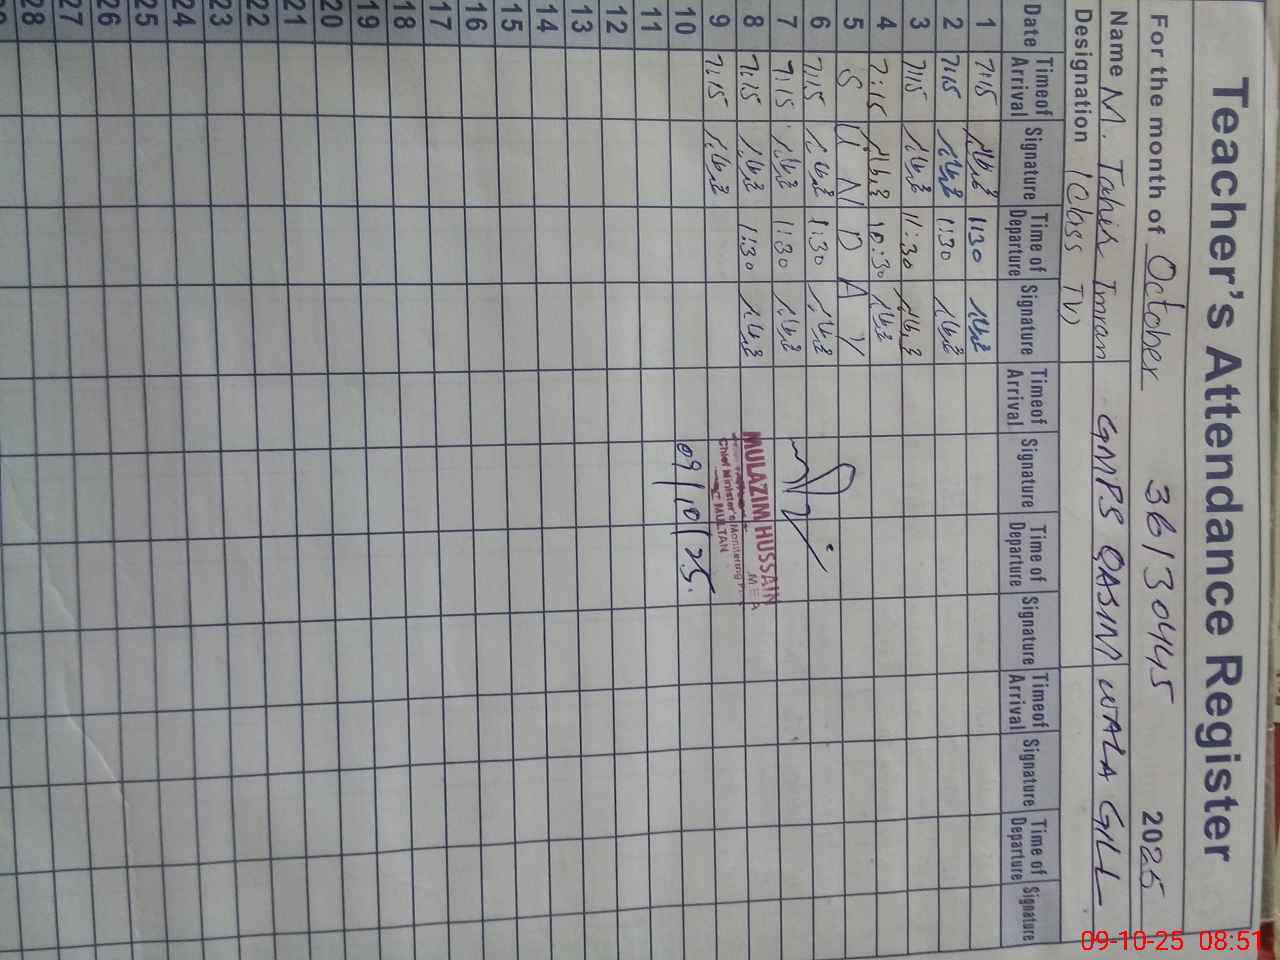 Teacher's Attendance Register
For the month of October 36130445 2025
Name M. Tahir Imran GMPS QASIM WALA GILL
Designation (Class IV)
Date Timeof Arrival Signature Time of Departure Signature Timeof Arrival Signature Time of Departure Signature Timeof Arrival Signature Time of Departure Signature
1 7:15 1:30
2 7:15 1:30
3 7:15 11:30
4 7:15 10:30
5 S U N D A Y
6 7:15 1:30
7 7:15 1:30
8 7:15 1:30
9 7:15
10
11
12
13
14
15
16
17
18
19
20
21
22
23
24
25
26
27
28
MULAZIM HUSSAIN
MEA
Chief Minister's Monitering
MULTAN
09/10/25.
09-10-25 08:51